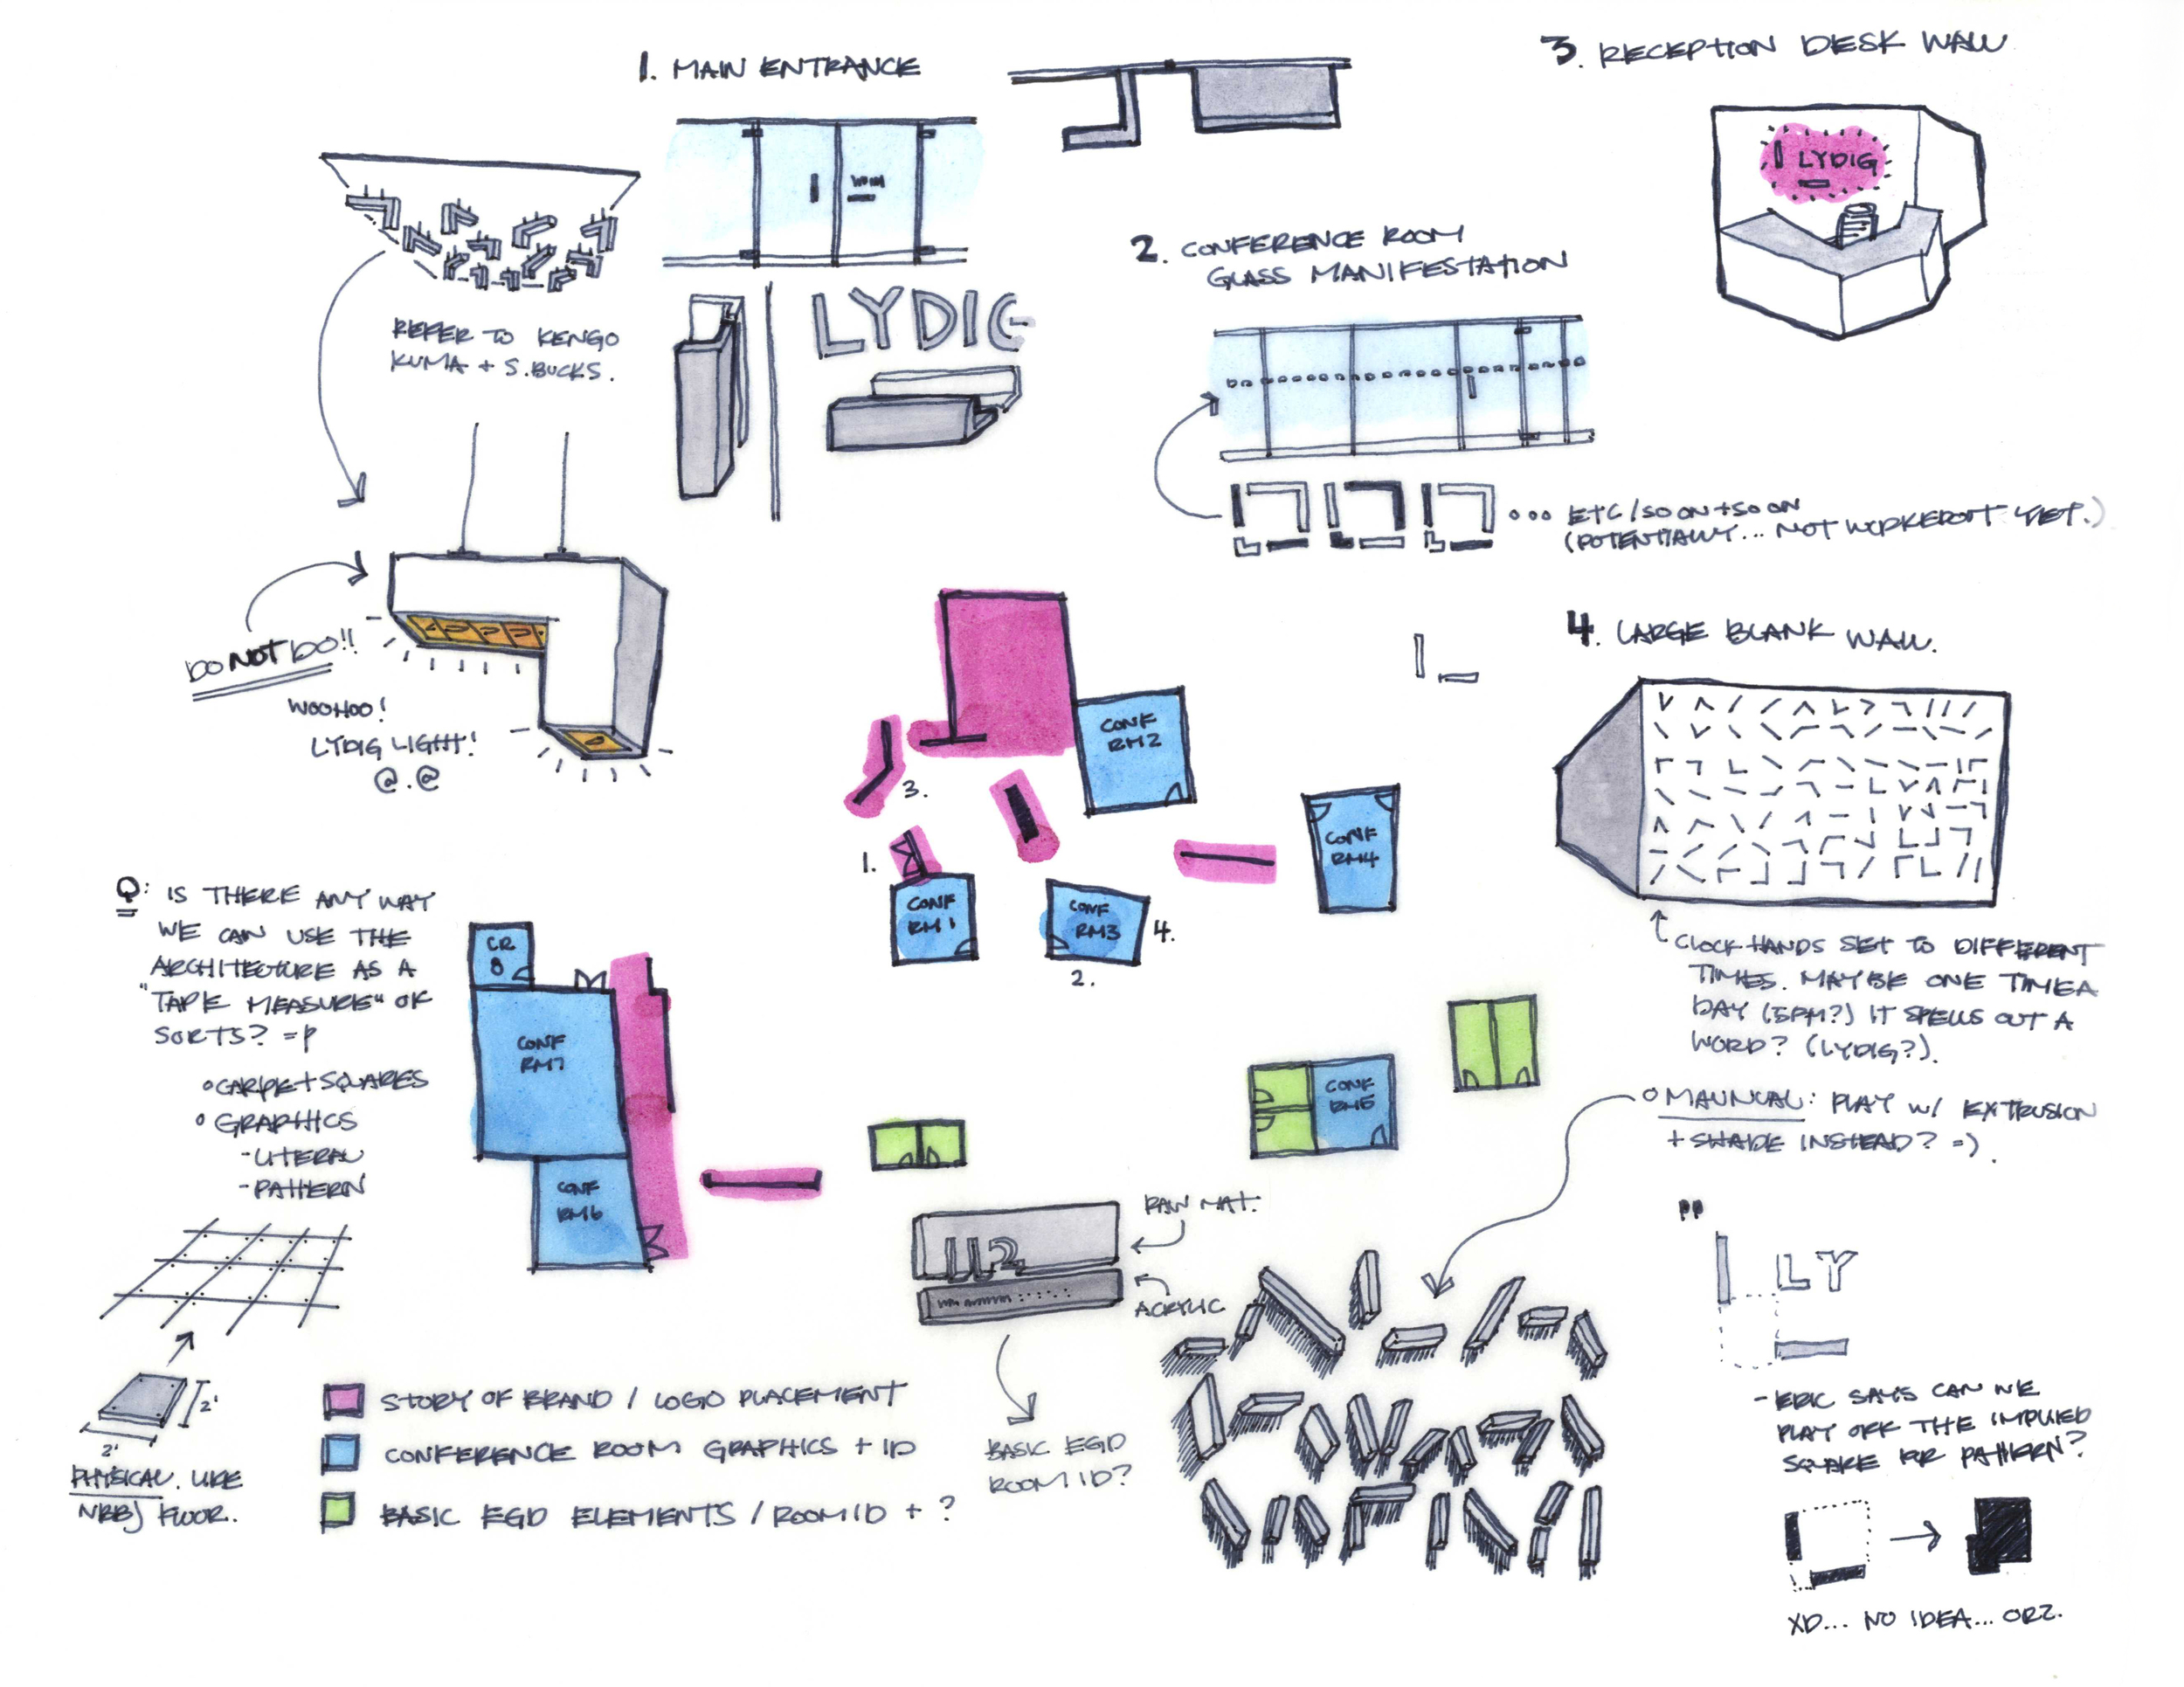 1. MAIN ENTRANCE
REFER TO KENGO
KUMA + S.BUCKS.
LYDIG
2. CONFERENCE ROOM
GLASS MANIFESTATION
... ETC/SO ON + SO ON
(POTENTIALLY... NOT WORKED OUT YET.)
3. RECEPTION DESK WALL
LYDIG
DO NOT DO!!
WOOHOO!
LYDIG LIGHT!
@.@
4. LARGE BLANK WALL.
CLOCK HANDS SET TO DIFFERENT
TIMES. MAYBE ONE TIME A
DAY (5PM?) IT SPELLS OUT A
WORD? (LYDIG?).
MAUNUAL: PLAY W/ EXTRUSION
+ SHADE INSTEAD? =)
CONF
RM2
3.
1.
CONF
RM1
CONF
RM3
4.
2.
CONF
RM4
CR
8
CONF
RM7
CONF
RM6
CONF
RM5
Q: IS THERE ANY WAY
WE CAN USE THE
ARCHITECTURE AS A
"TAPE MEASURE" OF
SORTS? =P
CARPET SQUARES
GRAPHICS
- LITERAL
- PATTERN
2'
2'
PHYSICAL. LIKE
NBBJ FLOOR.
112
RAW MAT.
ACRYLIC
BASIC EGD
ROOM ID?
STORY OF BRAND / LOGO PLACEMENT
CONFERENCE ROOM GRAPHICS + ID
BASIC EGD ELEMENTS / ROOM ID + ?
"
LY
- ERIC SAYS CAN WE
PLAY OFF THE IMPLIED
SQUARE FOR PATTERN?
XD... NO IDEA... ORZ.